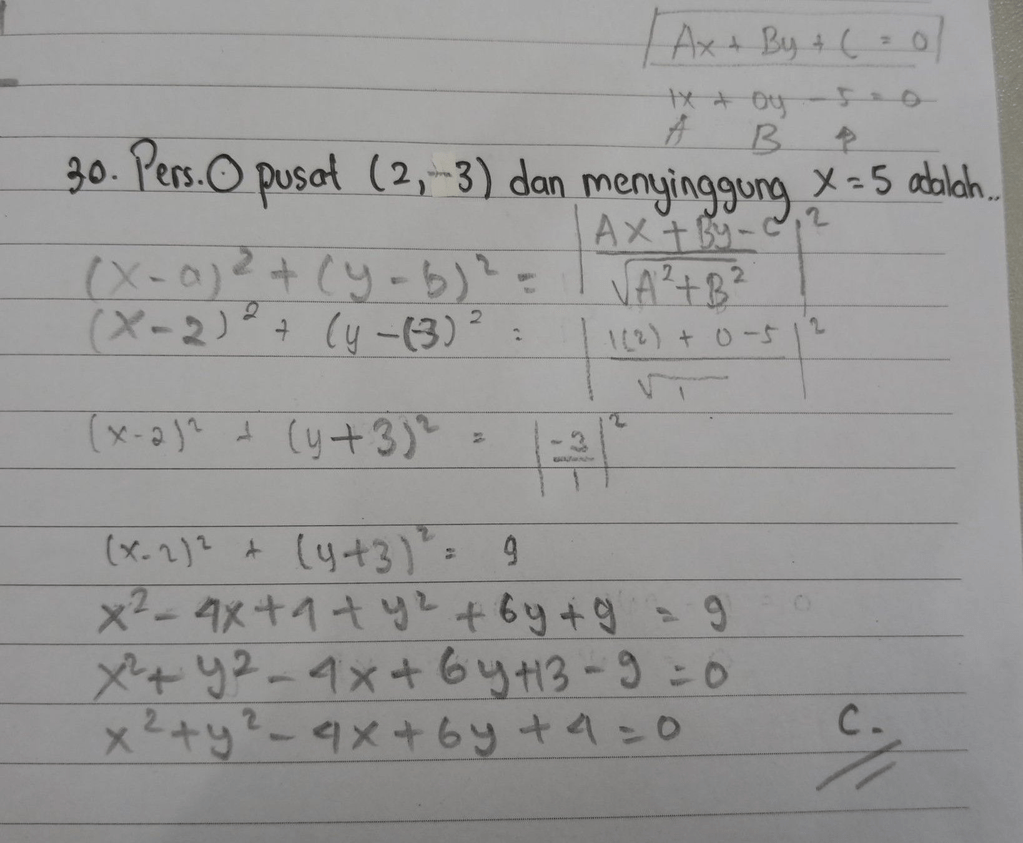 Ax + By + C = 0
1x + 0y - 5 = 0
A B
30. Pers. O pusat (2, -3) dan menyinggung x = 5 adalah..
(x - a)² + (y - b)² = |Ax + By - C / √A² + B²|²
(x - 2)² + (y - (-3)² = |1(2) + 0 - 5 / √1|²
(x - 2)² + (y + 3)² = |-3 / 1|²
(x - 2)² + (y + 3)² = 9
x² - 4x + 4 + y² + 6y + 9 = 9
x² + y² - 4x + 6y + 13 - 9 = 0
x² + y² - 4x + 6y + 4 = 0 C.